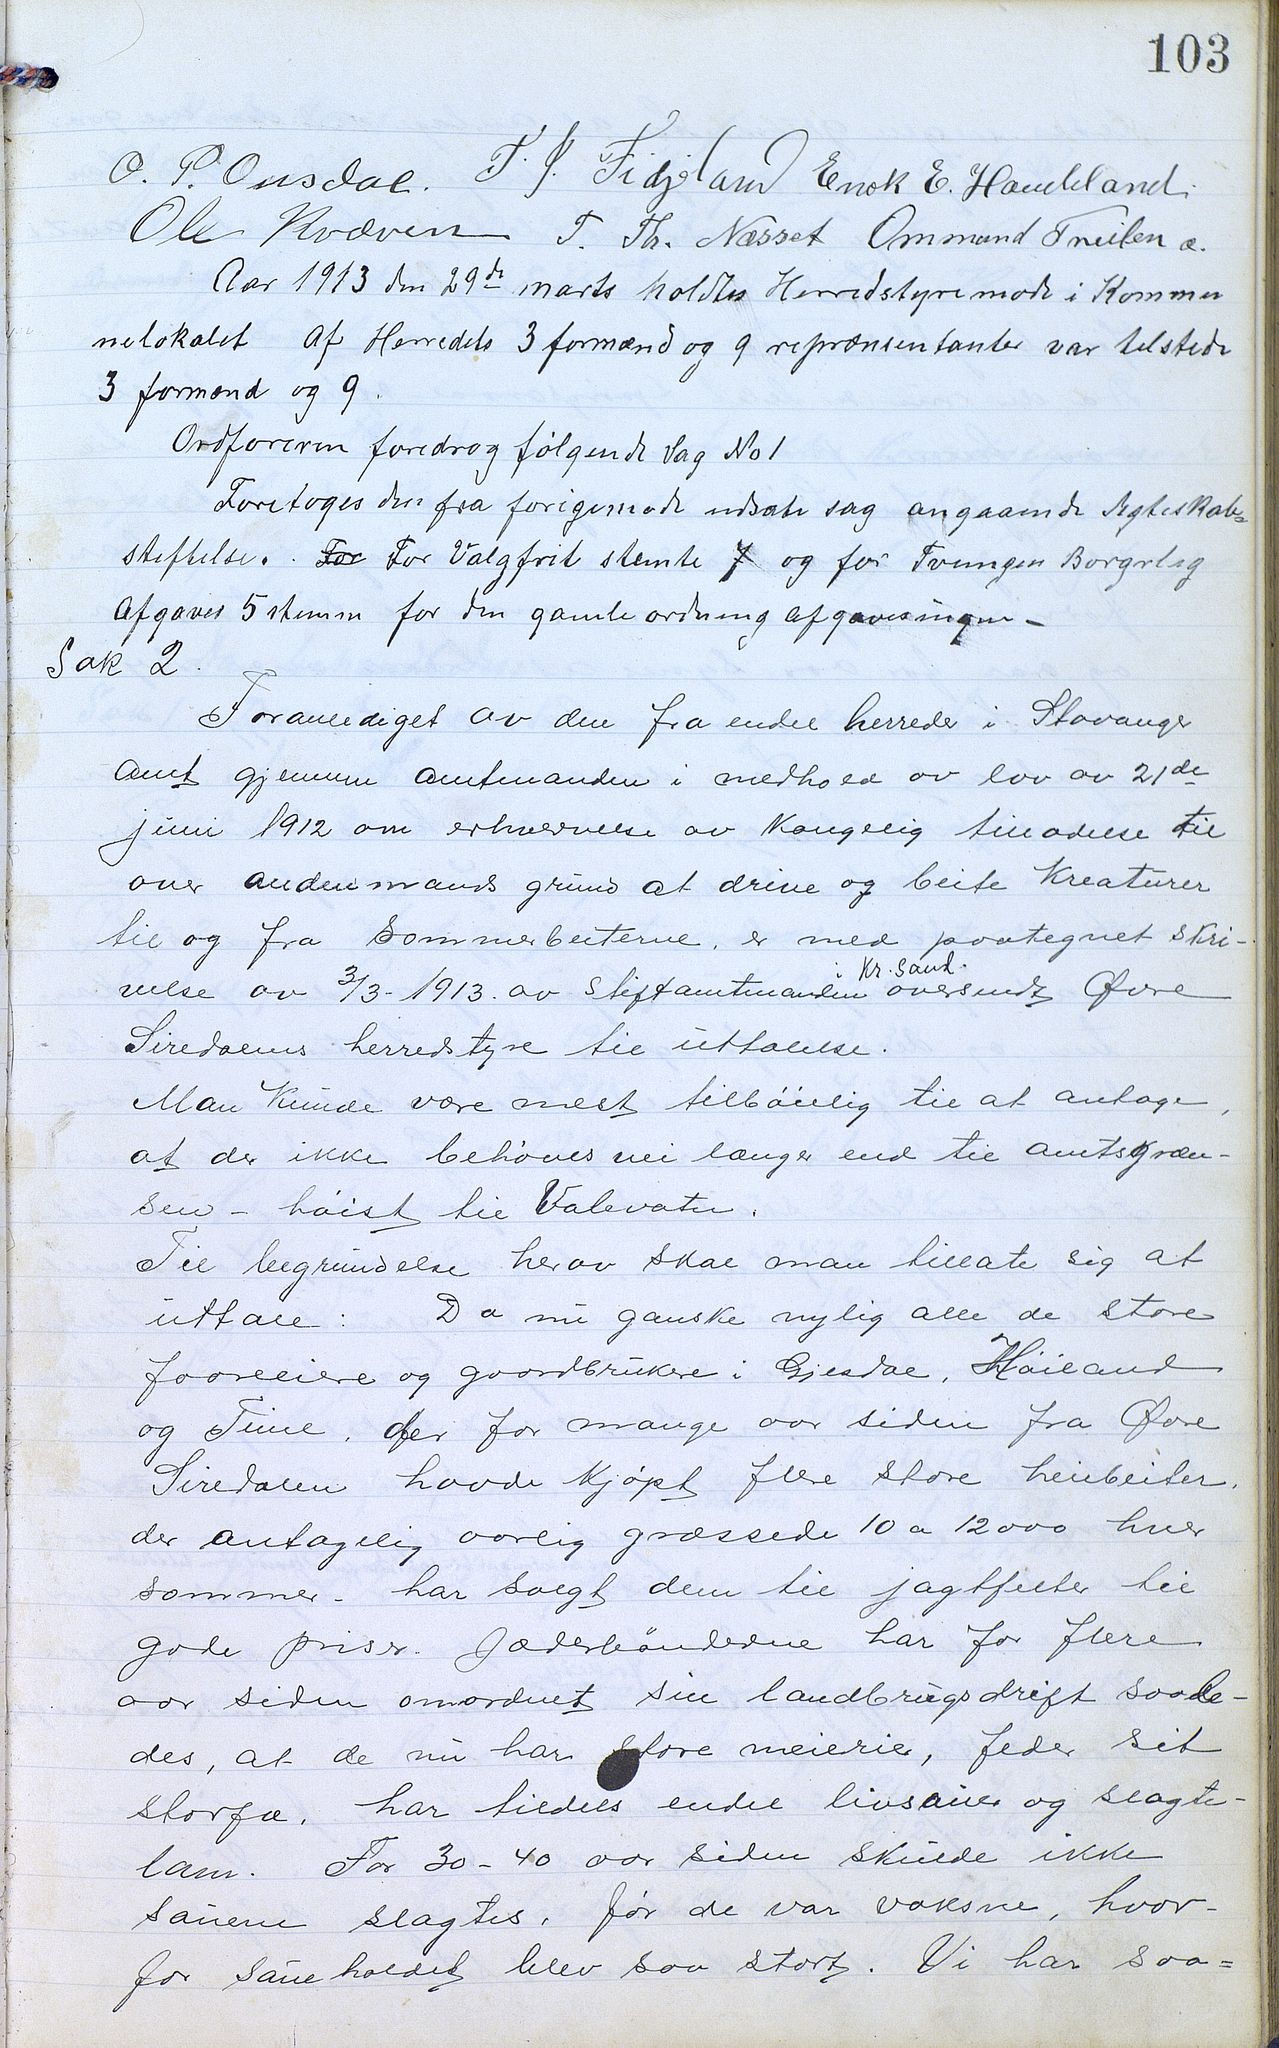 103
O. P. Ousdal. T. J. Fidjeland Enok E. Haukland.
Ole Kvæven T. Th. Nesset Ommund Treilen a.
Aar 1913 den 29de marts holdtes Herredstyremøde i Kommu
nelokalet Af Herredets 3 formænd og 9 repræsentanter var tilstede
3 formænd og 9.
Ordføreren foredrog følgende Sag No 1
Foretoges den fra forigemøde udsate sag angaaende Ægteskabs=
stiftelse. For For Valgfrit stemte 7 og for Tvungen Borgerlig
Afgaves 5 stemm for den gamle ordning afgaves ingen –
Sak 2.
Foranlediget av den fra endel herreder i Stavanger
amt gjennem amtmanden i medhold av lov av 21de
juni 1912 om erhvervelse av Kongelig tilladelse til
over andenmands grund at drive og beite Kreaturer
til og fra Sommerbeiterne, er med paategnet skri-
velse av 3/3-1913. av Stiftamtmanden i Kr.sand. oversendt Øvre
Siredalens herredstyre til uttalelse.
Man Kunde være mest tilbøielig til at antage,
at der ikke behøves vei længer end til amtsgræn-
sen – høist til Valevatn.
Til begrundelse herav skal man tillate sig at
uttale: Da nu ganske nylig alle de store
faareeiere og gaardbrukere i Gjesdal, Høiland
og Time, der for mange aar siden fra Øvre
Siredalen havde kjøpt flere store heibeiter,
der antagelig aarlig græssede 10 a 12000 hver
sommer – har solgt dem til jagtfelter til
gode priser. Jæderbønderne har for flere
aar siden omordnet sin landbrugsdrift saale-
des, at de nu har store meierier, feder sit
storfæ, har tildels endel livsauer og slagte-
lam. For 30-40 aar siden skulde ikke
sauene slagtes, før de var voksne, hvor-
for saueholdet blev saa stort. Vi har saa=